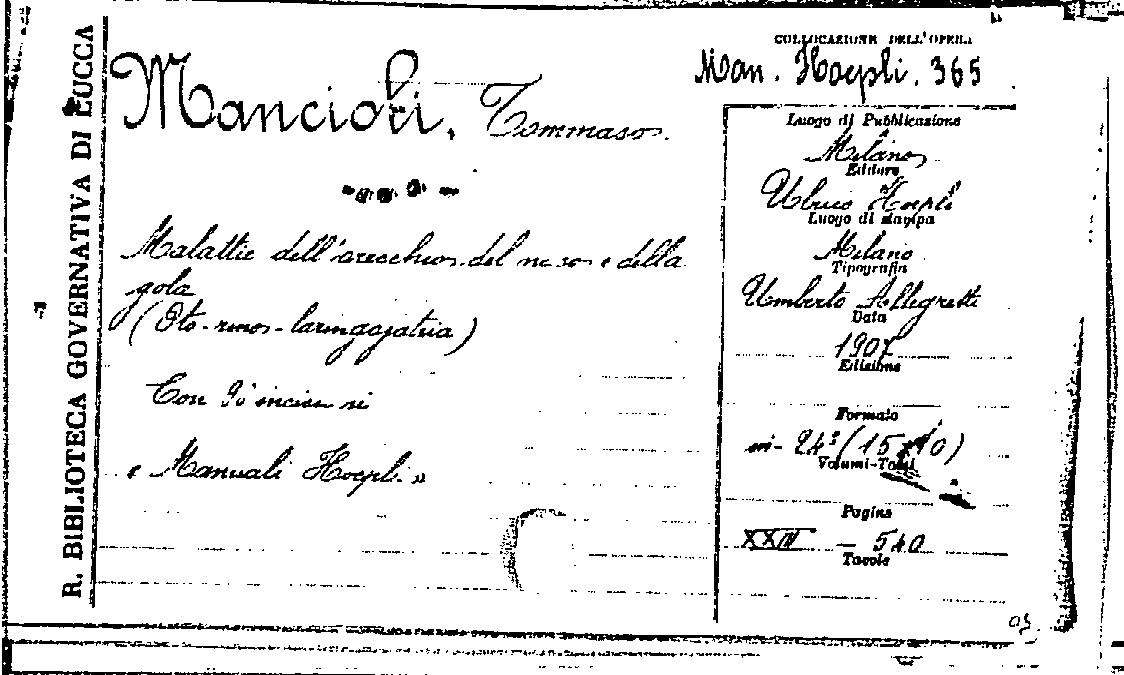 R. BIBLIOTECA GOVERNATIVA DI LUCCA
Mancioli, Tommaso.
Malattie dell'orecchio del naso e della
gola
(Oto-rino-laringojatria)
Con 98 incisioni
« Manuali Hoepli »
COLLOCAZIONE DELL'OPERA
Man. Hoepli. 365
Luogo di Pubblicazione
Milano
Editore
Ulrico Hoepli
Luogo di stampa
Milano
Tipografia
Umberto Allegretti
Data
1907
Edizione
Formato
in-24° (15×10)
Volumi-Tomi
Pagine
XXIV — 540
Tavole